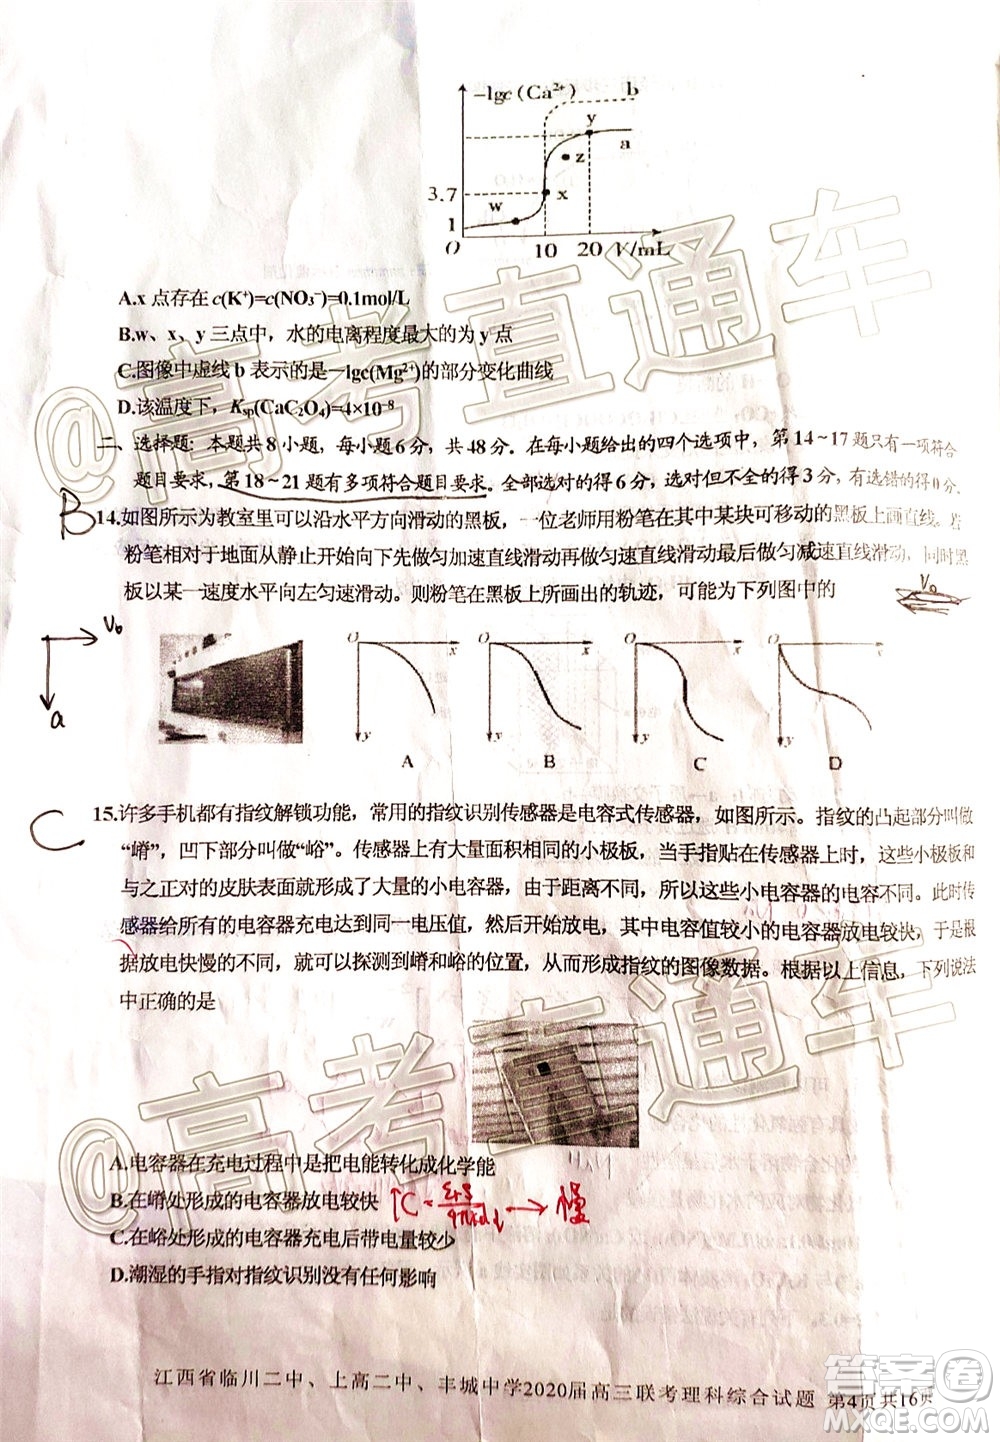 -lgc (Ca²⁺)
b
y
a
z
3.7
x
w
1
O
10
20
V/mL
A.x 点存在 c(K⁺)=c(NO₃⁻)=0.1mol/L
B.w、x、y 三点中，水的电离程度最大的为 y 点
C.图像中虚线 b 表示的是—lgc(Mg²⁺)的部分变化曲线
D.该温度下，Ksp(CaC₂O₄)=4×10⁻⁸
二、选择题：本题共8小题，每小题6分，共48分．在每小题给出的四个选项中，第14~17题只有一项符合
题目要求，第18~21题有多项符合题目要求。全部选对的得6分，选对但不全的得3分，有选错的得0分．
B
14.如图所示为教室里可以沿水平方向滑动的黑板，一位老师用粉笔在其中某块可移动的黑板上画直线．若
粉笔相对于地面从静止开始向下先做匀加速直线滑动再做匀速直线滑动最后做匀减速直线滑动，同时黑
板以某一速度水平向左匀速滑动．则粉笔在黑板上所画出的轨迹，可能为下列图中的
V₀
V₀
a
O
x
y
A
O
x
y
B
O
x
y
C
O
x
y
D
C
15.许多手机都有指纹解锁功能，常用的指纹识别传感器是电容式传感器，如图所示．指纹的凸起部分叫做
“嵴”，凹下部分叫做“峪”。传感器上有大量面积相同的小极板，当手指贴在传感器上时，这些小极板和
与之正对的皮肤表面就形成了大量的小电容器，由于距离不同，所以这些小电容器的电容不同。此时传
感器给所有的电容器充电达到同一电压值，然后开始放电，其中电容值较小的电容器放电较快，于是根
据放电快慢的不同，就可以探测到嵴和峪的位置，从而形成指纹的图像数据。根据以上信息，下列说法
中正确的是
A.电容器在充电过程中是把电能转化成化学能
B.在嵴处形成的电容器放电较快
↑C=
→慢
C.在峪处形成的电容器充电后带电量较少
D.潮湿的手指对指纹识别没有任何影响
江西省临川二中、上高二中、丰城中学2020届高三联考理科综合试题 第4页共16页
@高考直通车
@高考直通车
答案圈
MXQE.COM